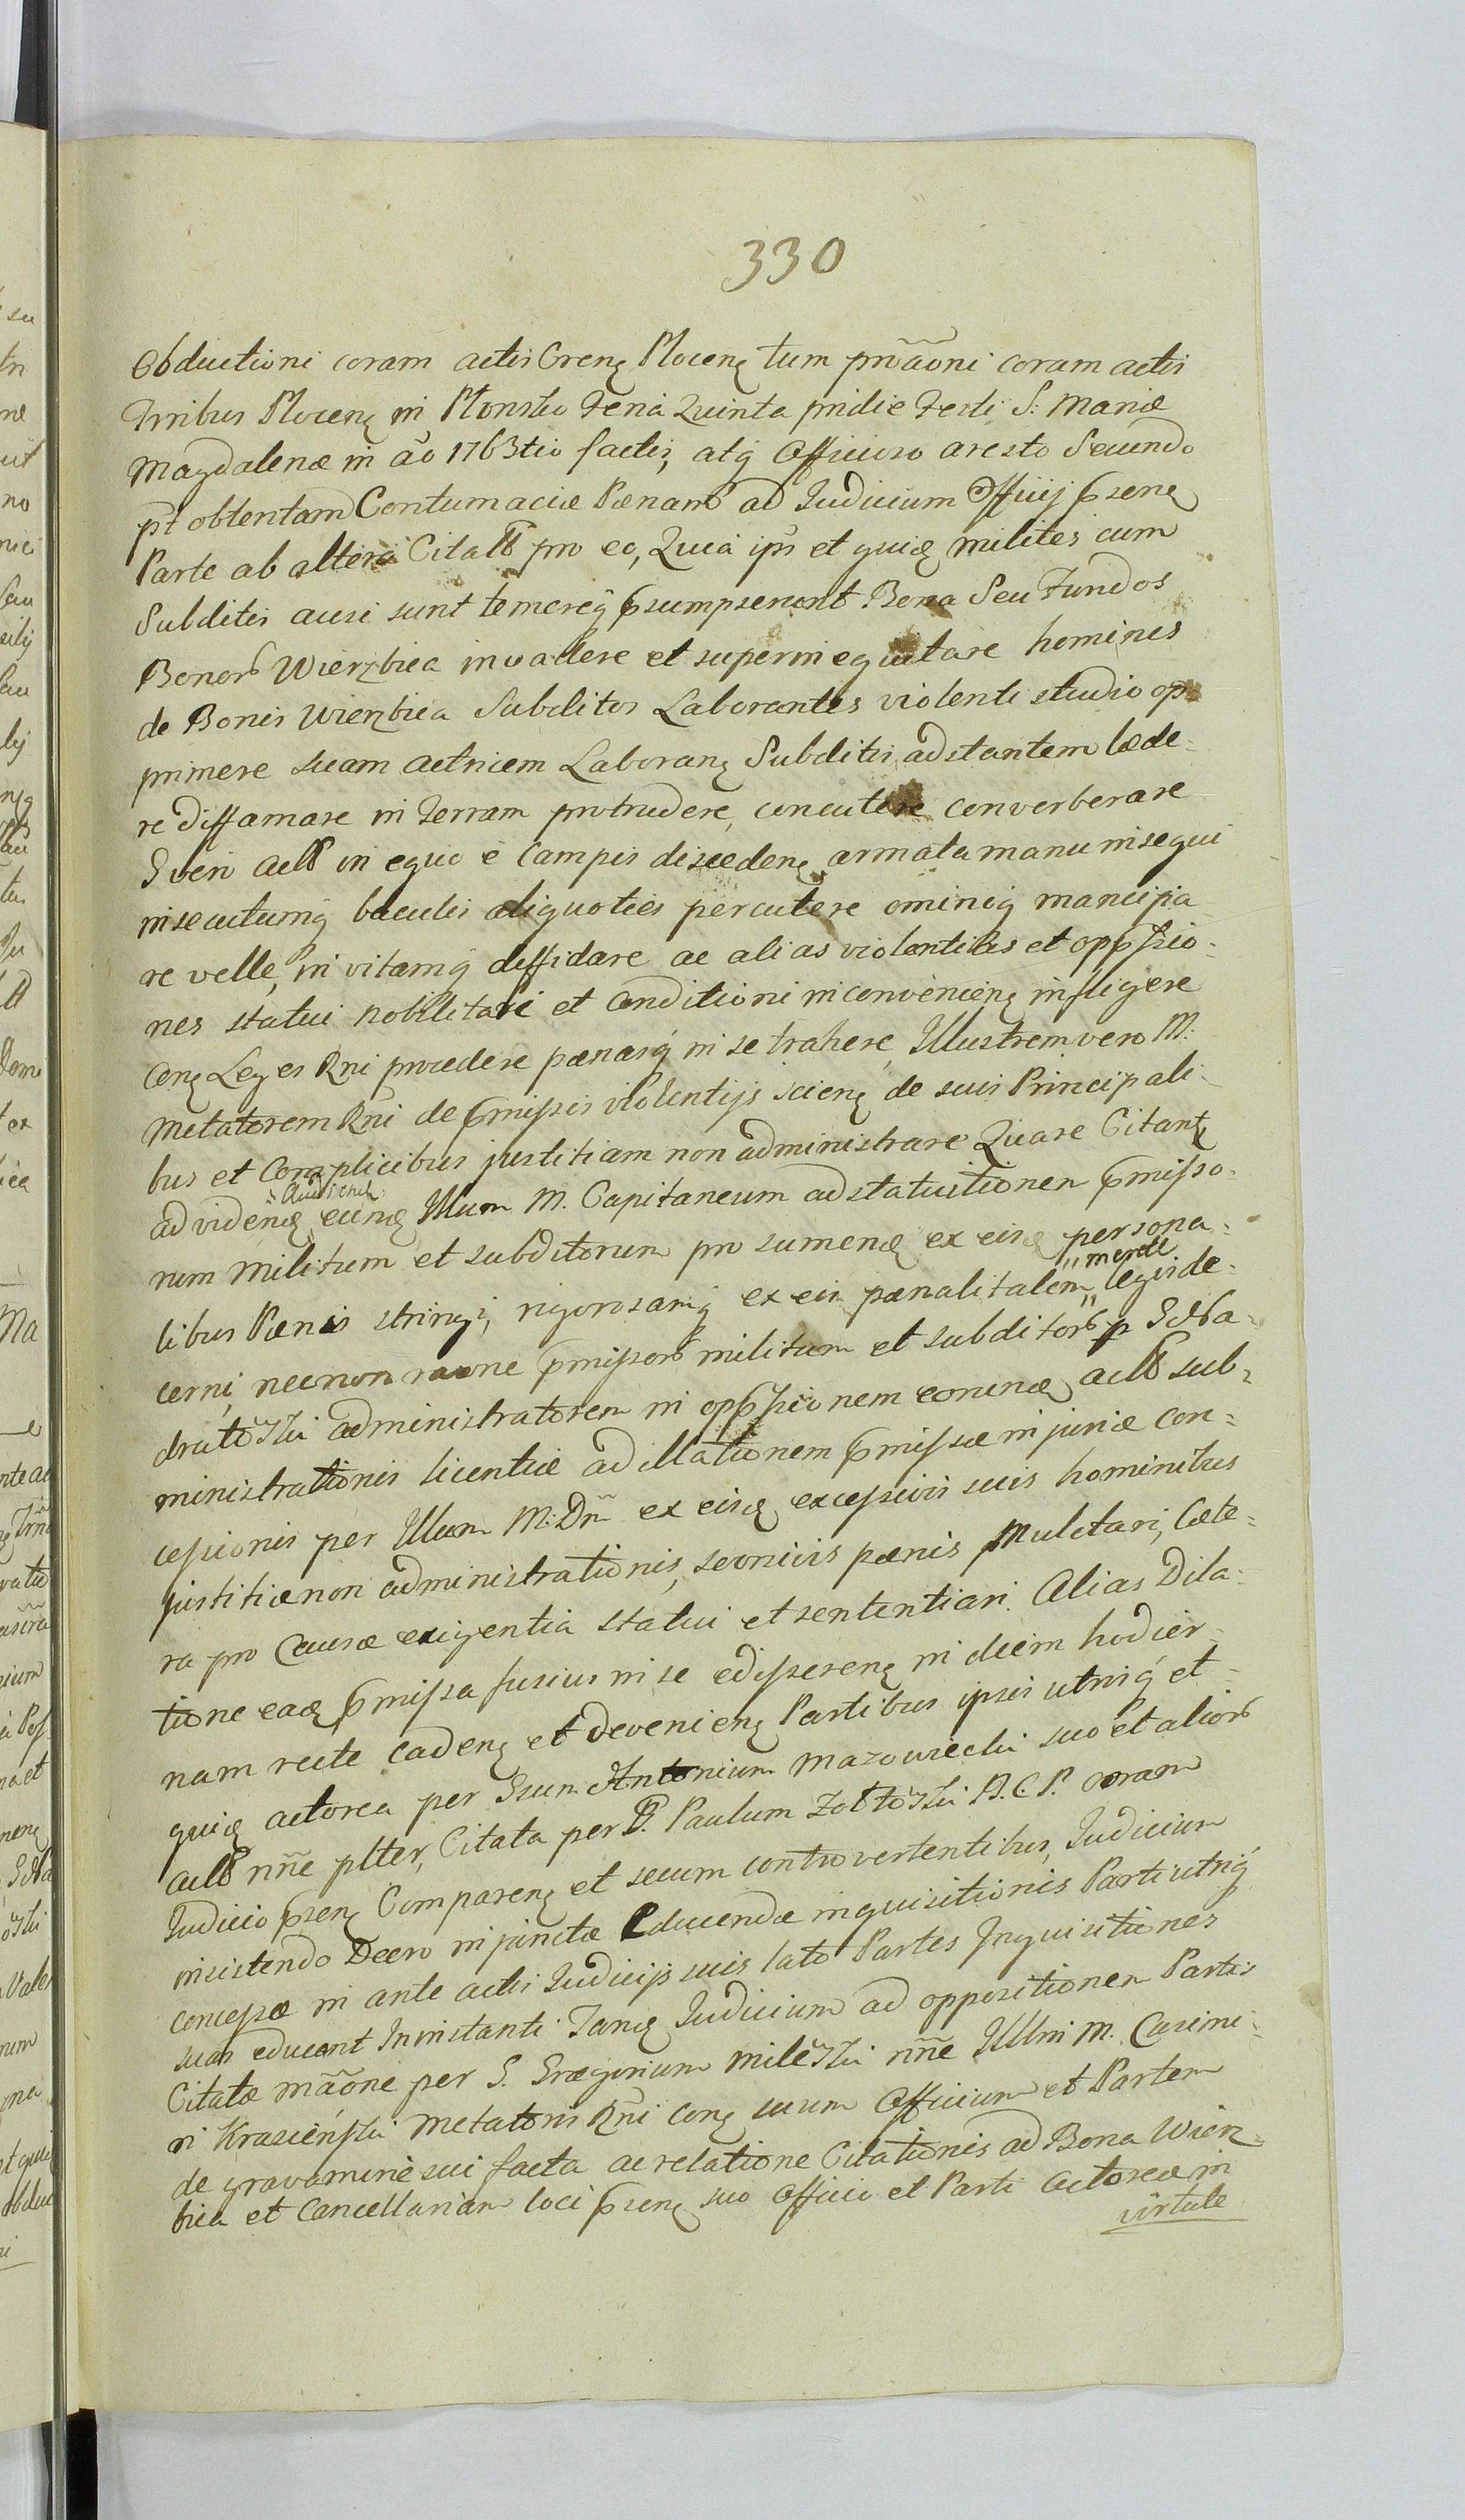 330
Obductioni coram actis Crenẹ Plocenẹ tum pnãoni coram actis
Trribus Plocenẹ in Plonsko Feria Quinta pridie Festi S: Mariæ
Magdalenæ in ão 1763tio factis, atq́ Officioso aresto Secundo
pt obtentam Contumaciæ Pænam ad Judicium Officij psenẹ
Parte ab altera Citatt pro eo, Quia ips et quiẹ milites cum
Subditis ausi sunt temereq́ psumpserunt Bona Seu Fundos
Bonorb Wierzbica invadere et superinequitare homines
de Bonis Wierzbica Subditos Laborantes violenti studio op
primere suam actricem Laboranẹ Subditis, adstantem læde-
re diffamare in terram protrudere, concutere converberare
G veri actt in equo e Campis discedenẹ armata manu insequi
insecutumq́ baculis aliquoties percutere ominoq́ mancipia
re velle, in vitamq́ diffidare ac alias violentias et oppssio-
nes statui nobilitari et conditioni inconvenienẹ infligere
Conẹ Leges Rni procedere pænasq́ in se trahere, Illustrem vero M:
Metatorem Rni de pmissis violentijs scienẹ de suis Principali-
bus et complicibus justitiam non administrare Quare Citantẹ
ad videnẹ eunẹ Illum M. Capitaneum ad statuitionem pmisso-
rum militum et subditorum pro sumenẹ ex eisẹ persona-
libus Pænis stringi, rigorosamq́ ex eis pænalitatem " merell " legis de-
cerni, necnon raone pmissorb militum et subditorb p G Na-
dratoski administratorem in oppssionem eorunẹ actt sub-
ministrationis licentiæ ad illationem pmissæ injuriæ con-
cessionis per Illum M: Dn̄ ex eisẹ excessivis suis hominibus
justitiæ non administrationis, servivis pænis Mulctari, Cæte-
ra pro Causæ exigentia statui et sententiari. Alias Dila-
tione eaẹ pmissa fusius in se edisserenẹ in diem hodier-
nam recte cadenẹ et devenienẹ Partibus ipsis utrisq́ et
quiẹ actorea per Gsum Antonium Mazowiecki suo et aliorb
actt nn̄e plter, Citata per P. Paulum Zołtoski B. C. P. coram
Judicio psenẹ Comparenẹ et secum controvertentibus, Judicium
insistendo Decro injunctæ Educendæ inquisitionis Parti utriq́
concessæ in ante actis Judicijs suis lato Partes Inquisitiones
suas educant In instanti. Tanẹ Judicium ad oppositionem Partis
Citatæ mãone per G. Gregorium Mileski nn̄e Illmi M. Casimi-
ri Krasieński Metatoris Rn̄i conẹ suum Officium et Partem
de gravamine sui facta ac relatione Citationis ad Bona Wierz-
bica et Cancellariam loci psenẹ suo Officio et Parti Actoreæ in
virtute